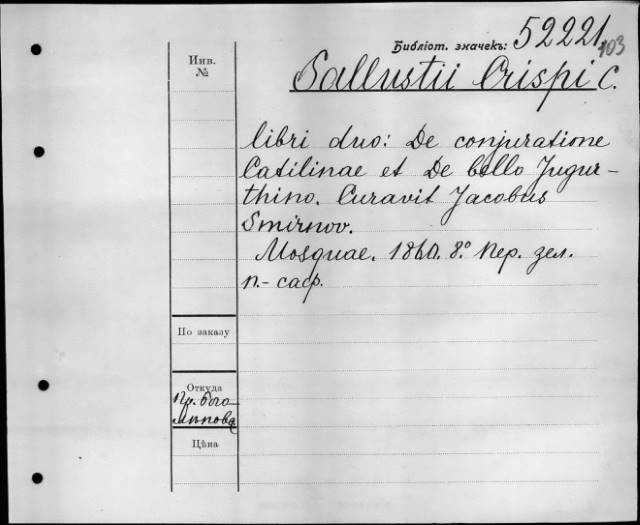 Библіот. значекъ: 52221
103
Инв.
№
Sallustii Crispi C.
libri duo: De conjuratione
Catilinae et De bello Jugur-
thino. Curavit Jacobus
Smirnov.
Mosquae. 1860. 8.° Пер. зел.
п.- саф.
По заказу
Откуда
Пр. бого-
Цѣна